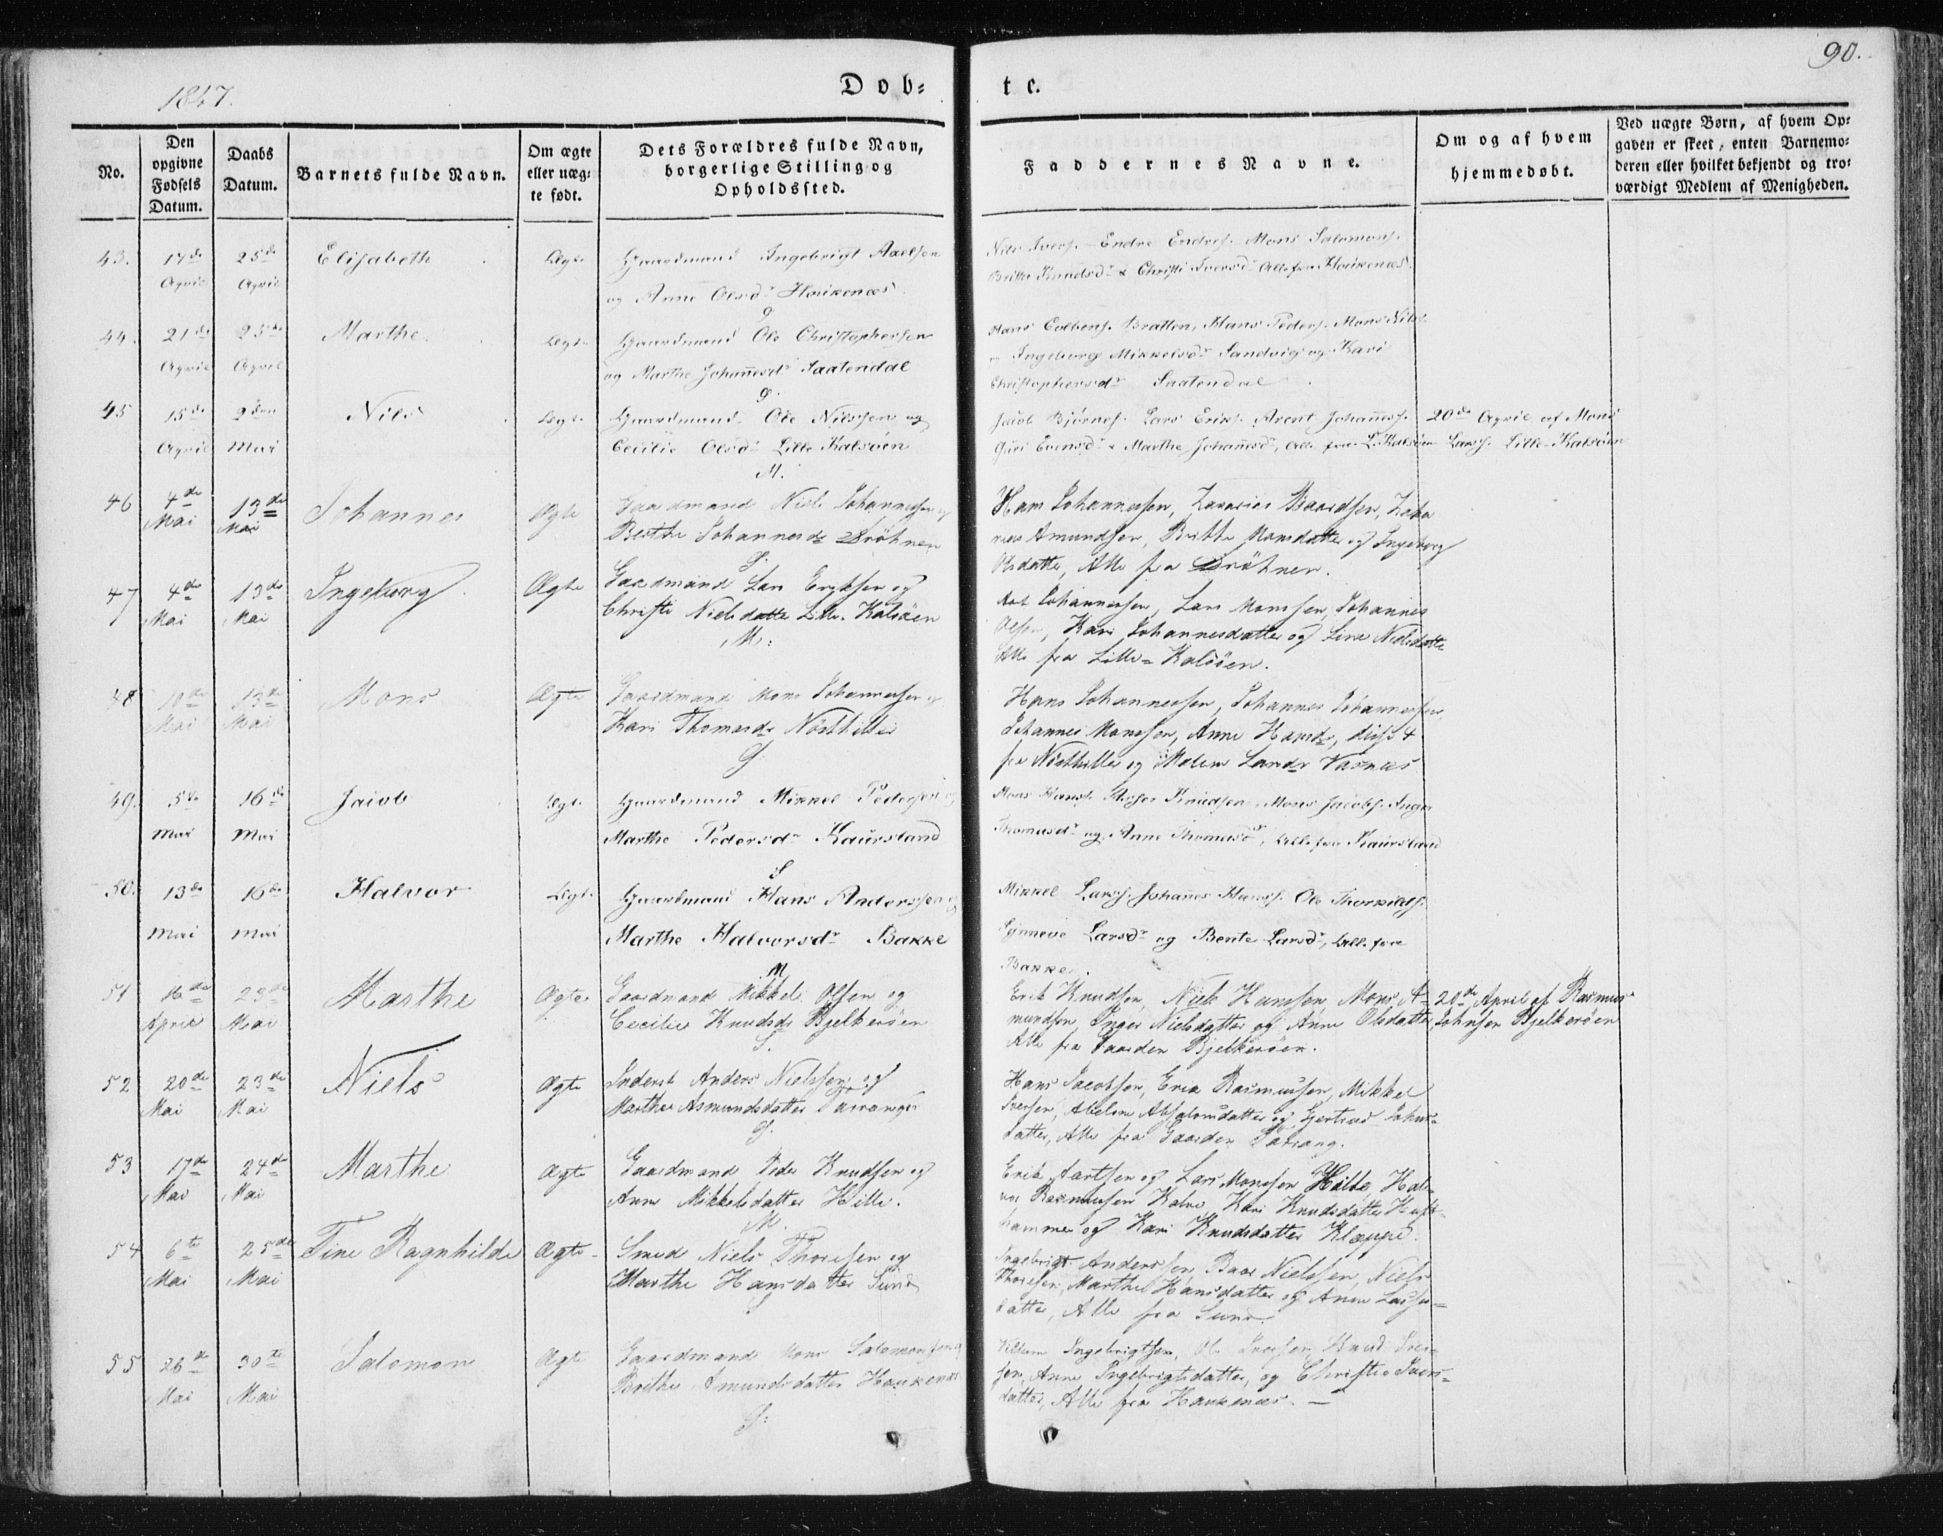 90.
1847.
Dob-
te.
No.
Den opgivne Fødsels Datum.
Daabs Datum.
Barnets fulde Navn.
Om ægte eller uæg- te født.
Dets Forældres fulde Navn, borgerlige Stilling og Opholdssted.
Faddernes Navne.
Om og af hvem hjemmedøbt.
Ved uægte Børn, af hvem Op- gaven er skeet, enten Barnemo- deren eller hvilket bekjendt og tro- værdigt Medlem af Menigheden.
43. 17de April 25de April Elisabeth Ægte
Gaardmand Ingebrigt Axelsen
og Anne Olsdr Haukenæs
Nils Ivers. Endre Endres. Mons Salomons.
Britte Knudsdr & Christi Iversdr Alle fra Haukenæs.
44. 21de April 25de April Marthe Ægte
Gaardmand Ole Christophersen
og Marthe Johannesdr Saatendal
Hans Bratten, Hans Peders. Mons Nils.
Ingeborg Mikkelsdr Sandvig og Kari
Christophersdr Saatendal
45 15de April 2den Mai Nils Ægte
Gaardmand Ole Nilssen og
Cecilie Olsdr Lille Kalsøen
M.
Jacob Bjørnes. Lars Eriks. Arent Johannes.
Guri Evensdr & Marthe Johannesdr, Alle fra L. Kalsøen
20de April af Mons
Lars. Lille-Kalsøen
46 4de Mai 13de Mai Johannes Ægte
Gaardmand Niels Johannessen og
Berthe Johannesdr Drøhnen
Hans Johannessen, Zacarias Baardsen, Joha
nes Amundsen, Britte Monsdatter og Ingeborg
Olsdatter, Alle fra Drøhnen.
47 4de Mai 13de Mai Ingeborg Ægte
Gaardmand Lars Eriksen og
Christi Nielsdatter Lille Kalsøen
M:
Johannessen, Lars Monssen, Johannes
Olsen, Kari Johannesdatter og Nielsdatter
Alle fra Lille-Kalsöen.
48 10de Mai 13de Mai Mons Ægte
Gaardmand Mons Johannessen og
Kari Thomasdr Nösthilles
Hans Johannessen, Johannes Johannessen
Johannes Monssen, Anne Hansdr, disse 4
fra Nösthilles og Malene Larsdr Vasnæs
49. 5de Mai 16de Mai Jacob Ægte
Gaardmand Mikkel Pedersen og
Marthe Pedersdr Kaursland
Mons Hans. Knudsen, Mons Jacobs.
Thomasdr og Anne Thomasdr, Alle fra Kaursland
50. 13de Mai 16de Mai Halvor Ægte
Gaardmand Hans Anderssen og
Marthe Halvorsdr Bakke
Mikkel Lars. Johannes Hans. Ole Thorkilds.
Synneve Larsdr og Bente Larsdr, Alle fra
Bakke.
51 16de April 23de Mai Marthe Ægte
M
Gaardmand Mikkel Olsen og
Cecilie Knudsdr Bjelkerøen
Erik Knudsen, Niels Hanssen, Mons A-
mundsen, Inger Nielsdatter og Anne Olsdatter,
Alle fra Gaarden Bjelkerøen.
20de April af Rasmus
Johnsen Bjelkerøen
52 20de Mai 23de Mai Niels Ægte
Inderst Anders Nielssen og
Marthe Asmundsdatter
Hans Jacobsen, Rasmussen, Mikkel
Iversen, Abelone Absalonsdatter og Gjertrud Johns-
datter, Alle fra Gaarden
53 17de Mai 24de Mai Marthe Ægte
Gaardmand Peder Knudsen og
Anne Mikkelsdatter Hille.
M.
Erik og Lars Monssen Hille, Hal-
vor Rasmussen Kalve, Kari Knudsdatter
hammer og Kari Knudsdatter Klæppe.
54 6te Mai 25de Mai Tine Ragnhilde Ægte
Smed Niels Thoresen og
Marthe Hansdatter Sund
Ingebrigt Anderssen, Baar Nielssen, Niels
Thoresen, Marthe Hansdatter og Anne Lasse-
datter, Alle fra Sund.
55 26de Mai 30te Mai Salomon Ægte
Gaardmand Mons Salomonsen og
Brithe Amundsdatter Haukenæs
Ingebrigtsen, Ole Iversen, Knud Iver-
sen, Anne Ingebrigtsdatter, og Christie Ivers-
datter, Alle fra Haukenæs. —